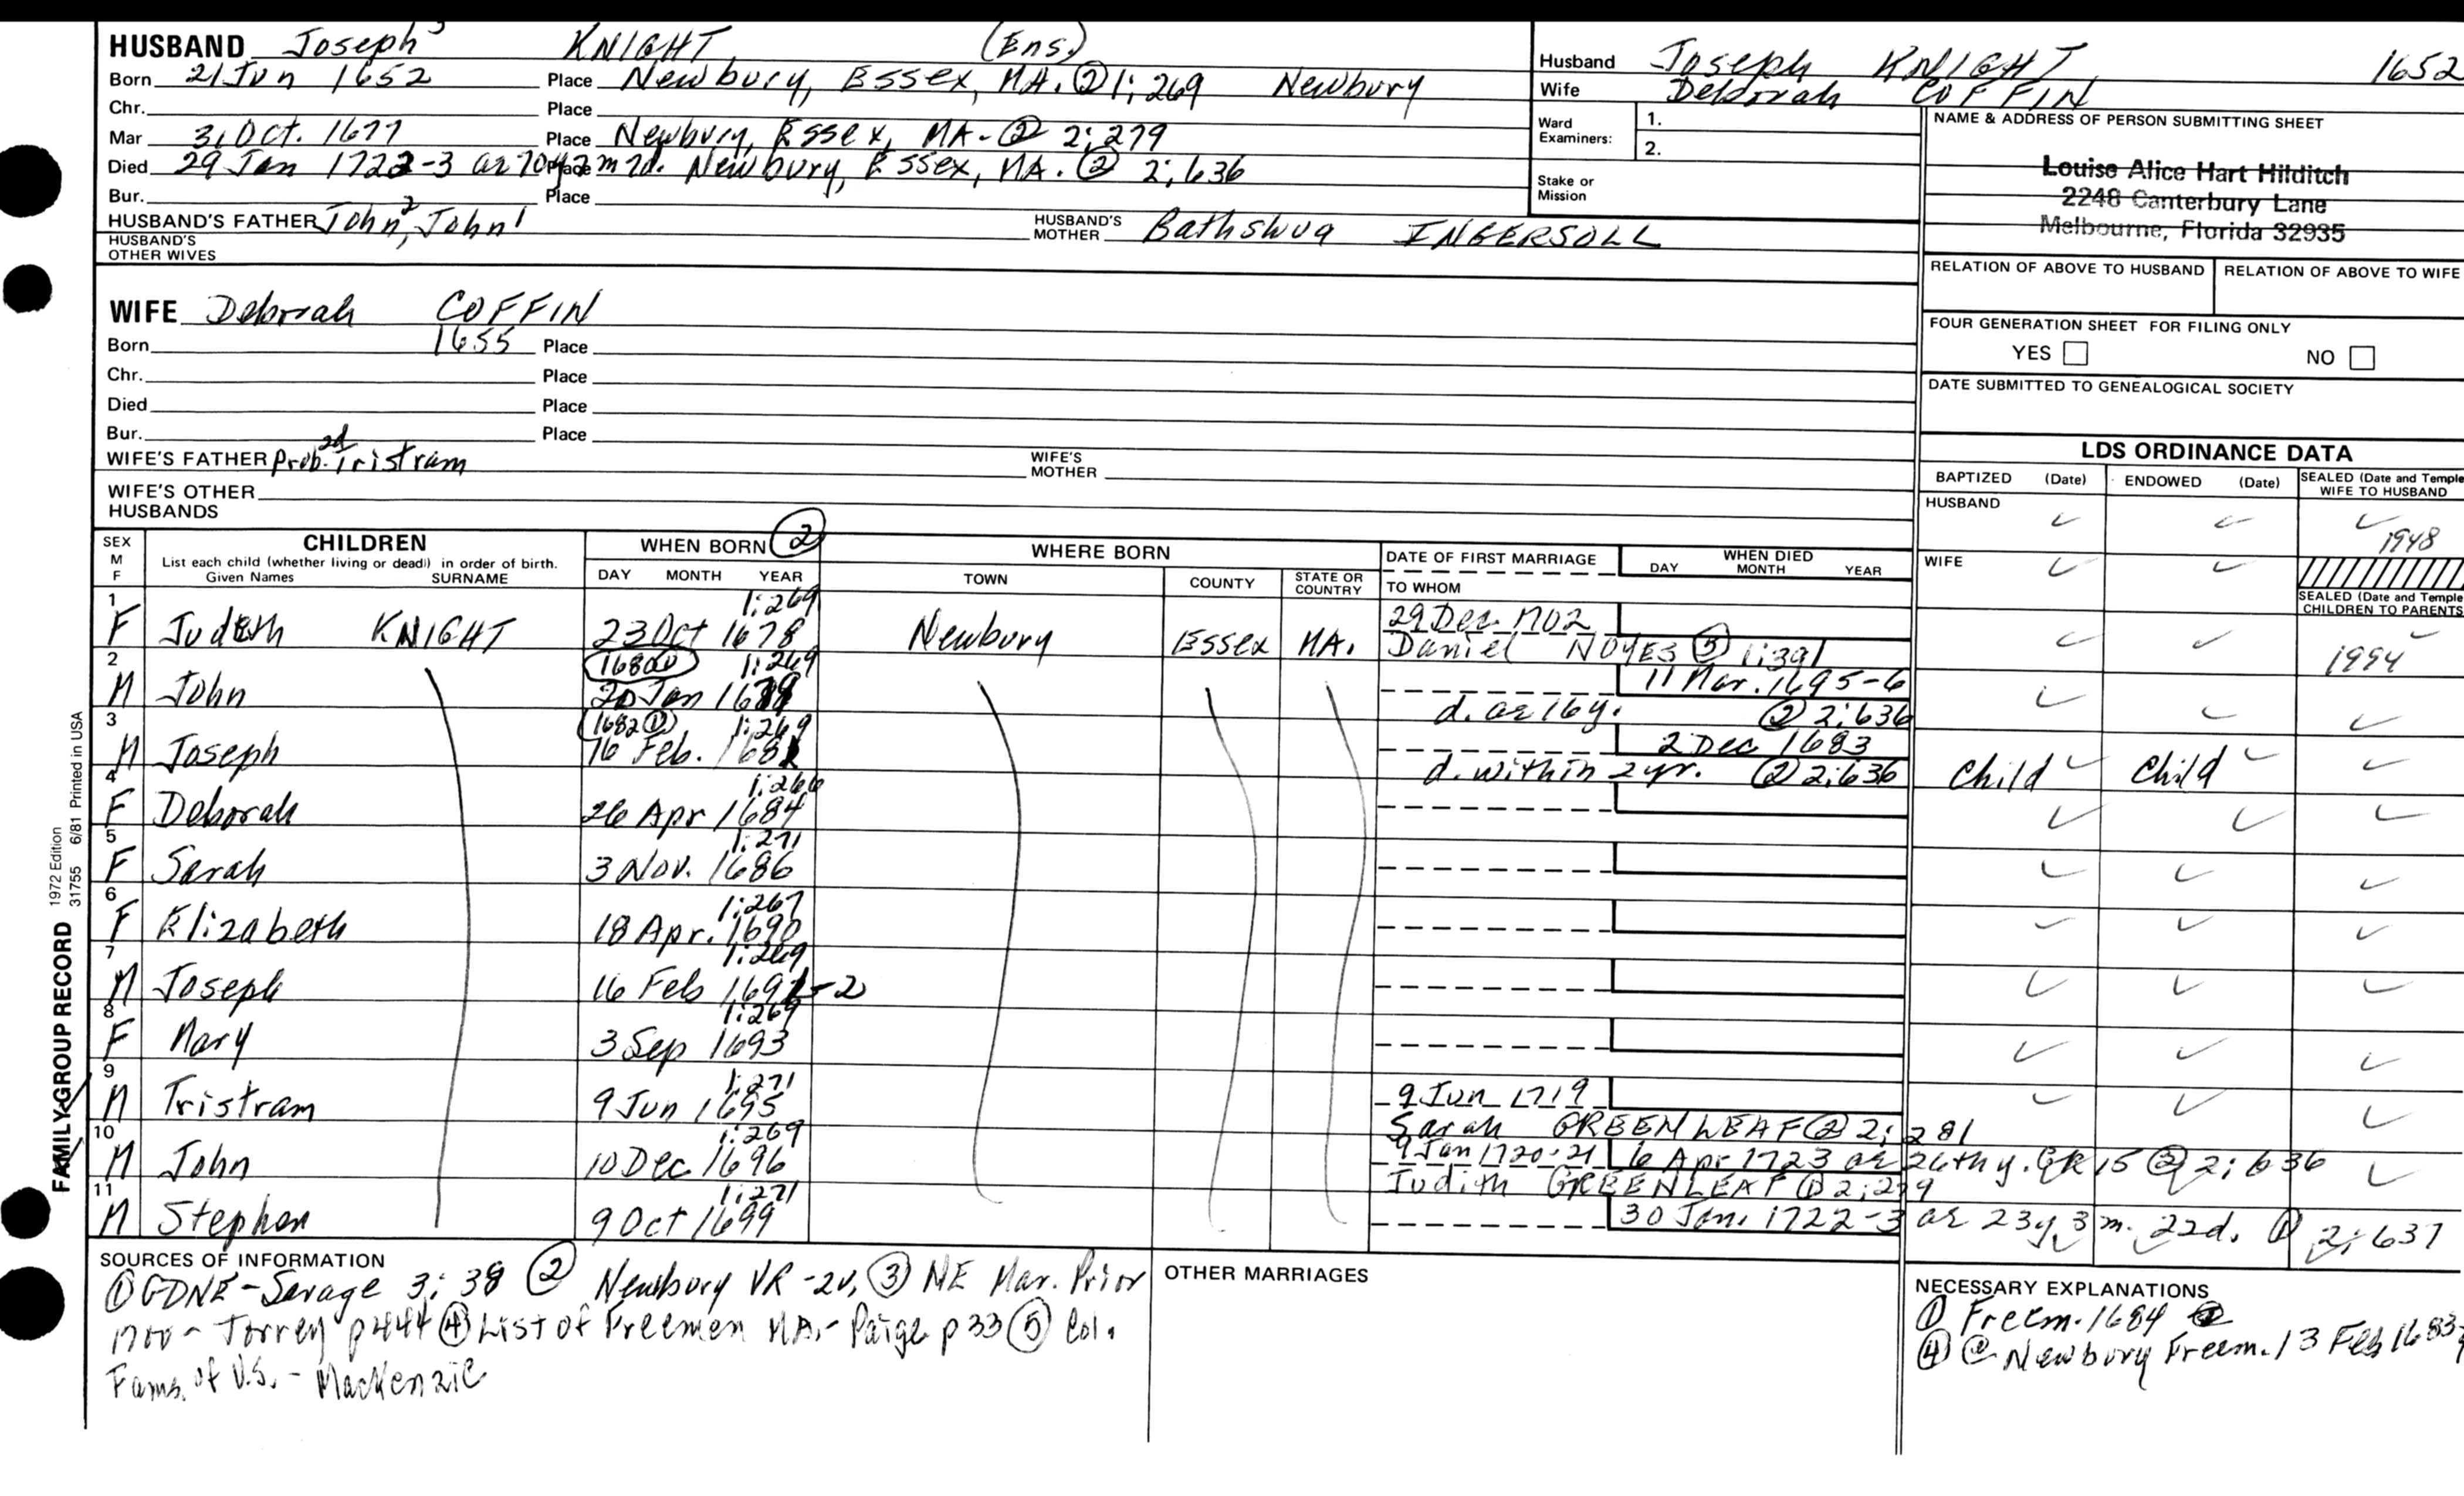 HUSBAND Joseph 3 KNIGHT (Ens.)
Born 21 Jun 1652 Place Newbury, Essex, MA. ② 1:269 Newbury
Chr. Place
Mar 31 Oct. 1677 Place Newbury, Essex, MA- ② 2:279
Died 29 Jan 1722-3 ae 70y 2m 7d. Place Newbury, Essex, MA. ② 2:636
Bur. Place
HUSBAND'S FATHER John 2, John 1 HUSBAND'S MOTHER Bathshua INGERSOLL
HUSBAND'S OTHER WIVES
Husband Joseph KNIGHT 1652
Wife Deborah COFFIN
Ward Examiners: 1.
2.
Stake or Mission
NAME & ADDRESS OF PERSON SUBMITTING SHEET
Louise Alice Hart Hilditch
2248 Canterbury Lane
Melbourne, Florida 32935
RELATION OF ABOVE TO HUSBAND RELATION OF ABOVE TO WIFE
FOUR GENERATION SHEET FOR FILING ONLY
YES NO
DATE SUBMITTED TO GENEALOGICAL SOCIETY
WIFE Deborah COFFIN
Born 1655 Place
Chr. Place
Died Place
Bur. Place
WIFE'S FATHER Prob. Tristram 2d WIFE'S MOTHER
WIFE'S OTHER HUSBANDS
LDS ORDINANCE DATA
BAPTIZED (Date) ENDOWED (Date) SEALED (Date and Temple) WIFE TO HUSBAND
HUSBAND ✓ ✓ ✓ 1948
WIFE ✓ ✓
SEALED (Date and Temple) CHILDREN TO PARENTS
SEX M F CHILDREN WHEN BORN ② WHERE BORN DATE OF FIRST MARRIAGE WHEN DIED
List each child (whether living or dead) in order of birth.
Given Names SURNAME DAY MONTH YEAR TOWN COUNTY STATE OR COUNTRY TO WHOM DAY MONTH YEAR
1 F Judith KNIGHT 1:269 23 Oct 1678 Newbury Essex MA. 29 Dec 1702 ✓ ✓ ✓
Daniel NOYES ③ 1:391 1994
2 M John 1680 ① 1:269 20 Jan 11 Mar. 1695-6 ✓ ✓ ✓
d. ae 16y. ② 2:636
3 M Joseph 1682 ① 1:269 16 Feb. 1681 2 Dec 1683 Child ✓ Child ✓ ✓
d. within 2 yr. ② 2:636
4 F Deborah 1:266 26 Apr 1684 ✓ ✓ ✓
5 F Sarah 1:271 3 Nov. 1686 ✓ ✓ ✓
6 F Elizabeth 1:267 18 Apr. 1690 ✓ ✓ ✓
7 M Joseph 1:269 16 Feb 1691-2 ✓ ✓ ✓
8 F Mary 1:269 3 Sep 1693 ✓ ✓ ✓
9 M Tristram 1:271 9 Jun 1695 9 Jun 1719 ✓ ✓ ✓
Sarah GREENLEAF ② 2:281
10 M John 1:269 10 Dec 1696 9 Jan 1720-21 6 Apr 1723 ae 26th y. GR 15 ② 2:636 ✓
Judith GREENLEAF ② 2:279
11 M Stephen 1:271 9 Oct 1699 30 Jan. 1722-3 ae 23y 3m. 22d. 2:637
SOURCES OF INFORMATION
① GDNE-Savage 3:38 ② Newbury VR-2v, ③ NE Mar. Prior
1700 - Torrey p444 ④ List of Freemen MA.- Paige p 33 ⑤ Col.
Fams. of U.S. - MacKenzie
OTHER MARRIAGES
NECESSARY EXPLANATIONS
① Freem. 1684
④ @ Newbury Freem. 13 Feb 1683
FAMILY GROUP RECORD 1972 Edition
31755 6/81 Printed in USA